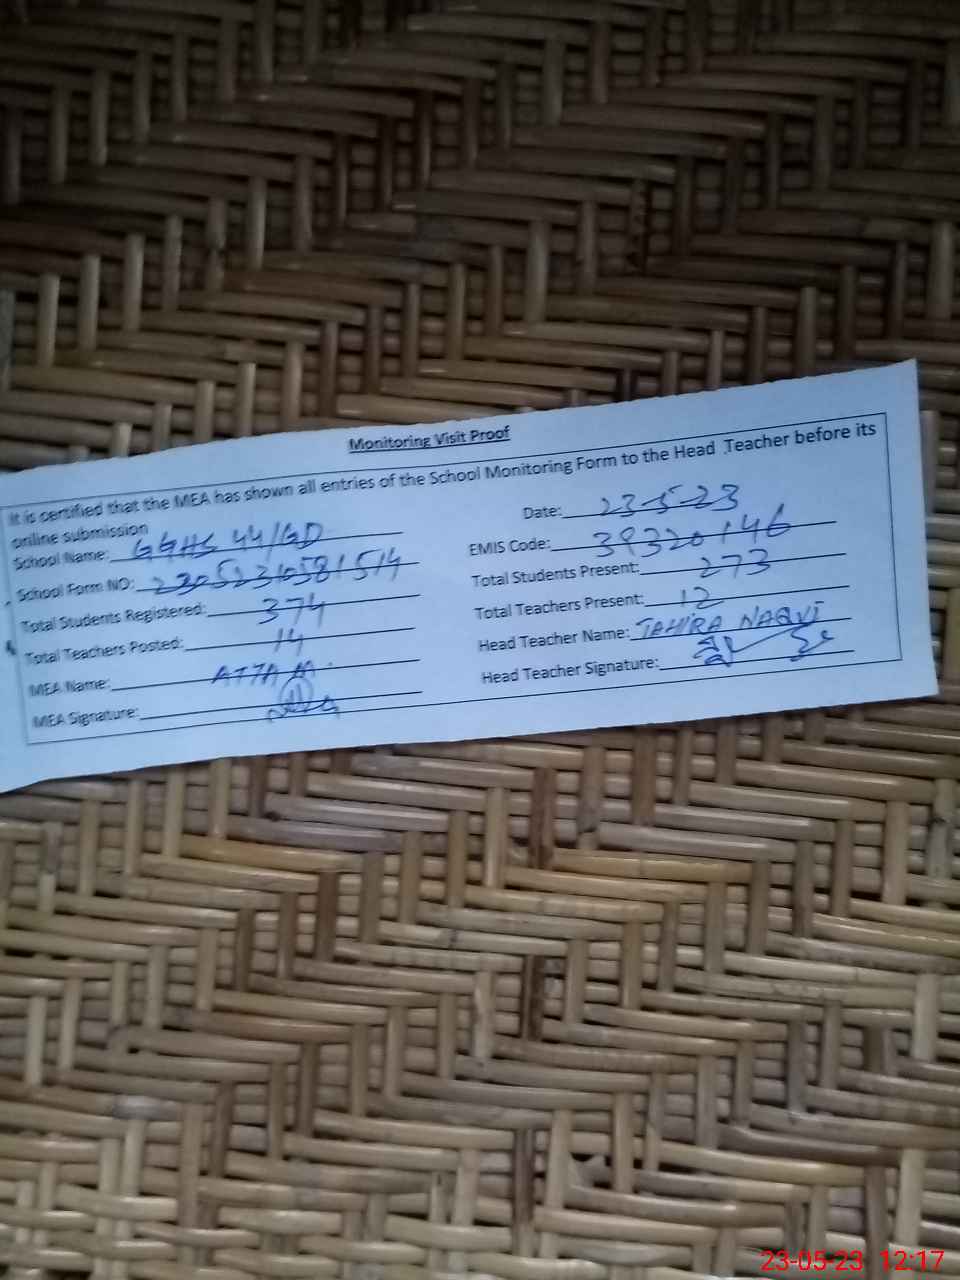 Monitoring Visit Proof
It is certified that the MEA has shown all entries of the School Monitoring Form to the Head Teacher before its
online submission
Date: 23-5-23
School Name: GGHS 44/GD
EMIS Code: 39320146
School Form NO: 23052310581514
Total Students Present: 273
Total Students Registered: 374
Total Teachers Present: 12
Total Teachers Posted: 14
Head Teacher Name: TAHIRA NAQVI
MEA Name: ATTA M
Head Teacher Signature:
MEA Signature:
23-05-23 12:17